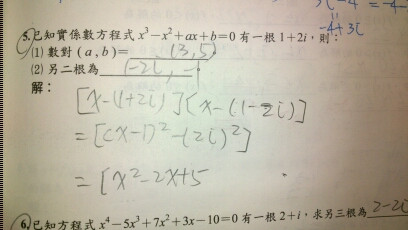 3i-4 = -4-
-4+3i
5.已知實係數方程式 x³-x²+ax+b=0 有一根 1+2i，則：
(1) 數對 (a,b)= (3,5)
(2) 另二根為 1-2i, -1
解：
[x-(1+2i)][x-(1-2i)]
=[(x-1)²-(2i)²]
=[x²-2x+5
6.已知方程式 x⁴-5x³+7x²+3x-10=0 有一根 2+i，求另三根為 2-2i